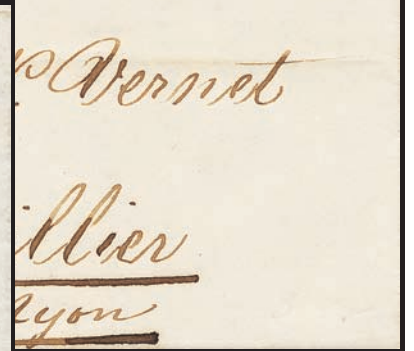 Vernet
illier
nyon